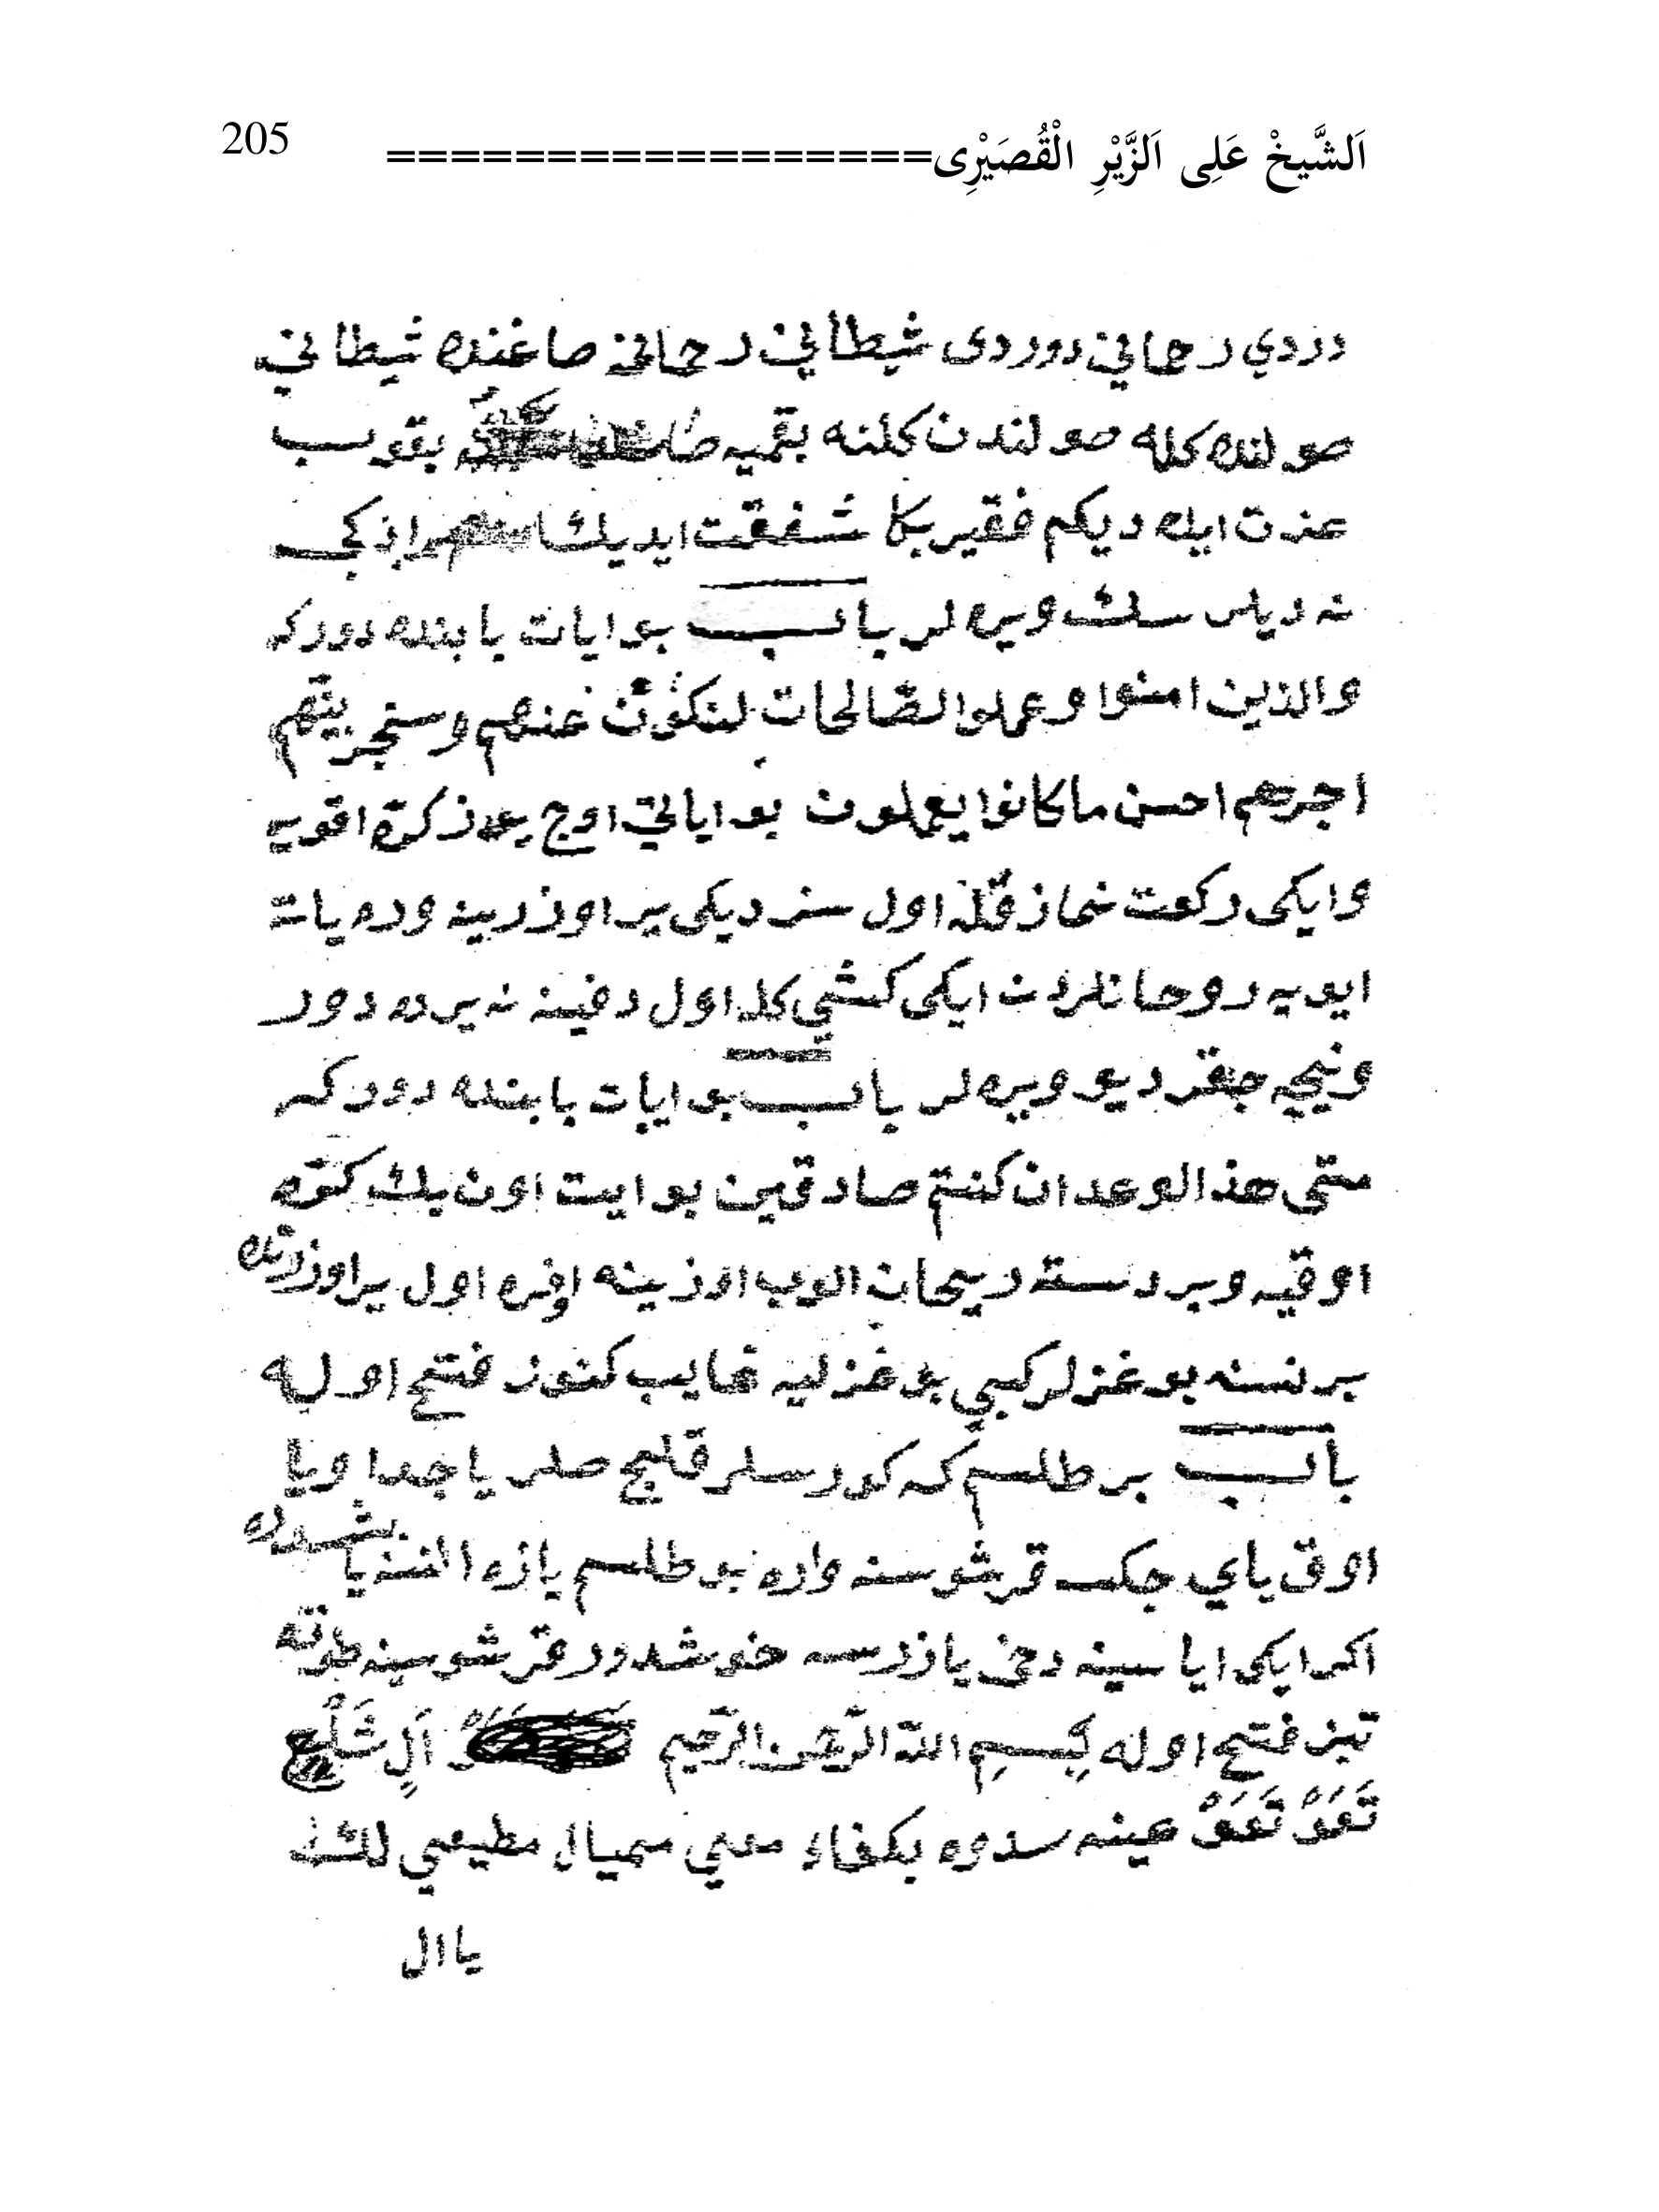 205 اَلشَّيخْ عَلِى اَلزَّيْرِ الْقُصَيْرِى=================
دزدي رحماني دوردى شيطاني رحماني صاغنده شيطاني
صولنده كله صولندن كلنه بقميه بقوب
عزت ايله ديكم فقير بكا شفقت ايديك
نه ديلر سك ويره لر باب بو ايات بابنده دوركه
والذين امنوا وعملوا الصّالحات لنكفرنّ عنهم وسنجزينّهم
اجرهم احسن ما كانوا يعملون بو اياتي اوج يوز كره اقويه
وايكى ركعت نماز قله اول سزديكى ير اوزرينه ورده ياته
ايويه روحانلردن ايكى كشي كله اول دفينه نه يرده دور
ونيجه جقر ديو ويره لر باب بو ايات بابنده دوركه
متى هذالوعدان كنتم صادقين بو ايت اون بيك كتره
اوقيه وبر دسته ريحان الوب اوزينه اوفره اول ير اوزرنده
بر نسنه بوغزلر كبي بوغزليه غايب كنوز فتح اوله
باب بر طلسم كه كورسلر قليج صلر يا جدا ويا
اوق ياي جكسه قرشوسنه واره بو طلسم يازه النه يا بشدرده
اكر ايكى اياسينه دخى يازرسه خوشدور قرشوسينه طوته
تيز فتح اوله بِسمِ اللّه الرّحمن الرّحيم اَلِ شَلْعِ
تَعَدْ تَعَوْ عينه سدوه بكفاء معي سميال مطيعي
يا ال